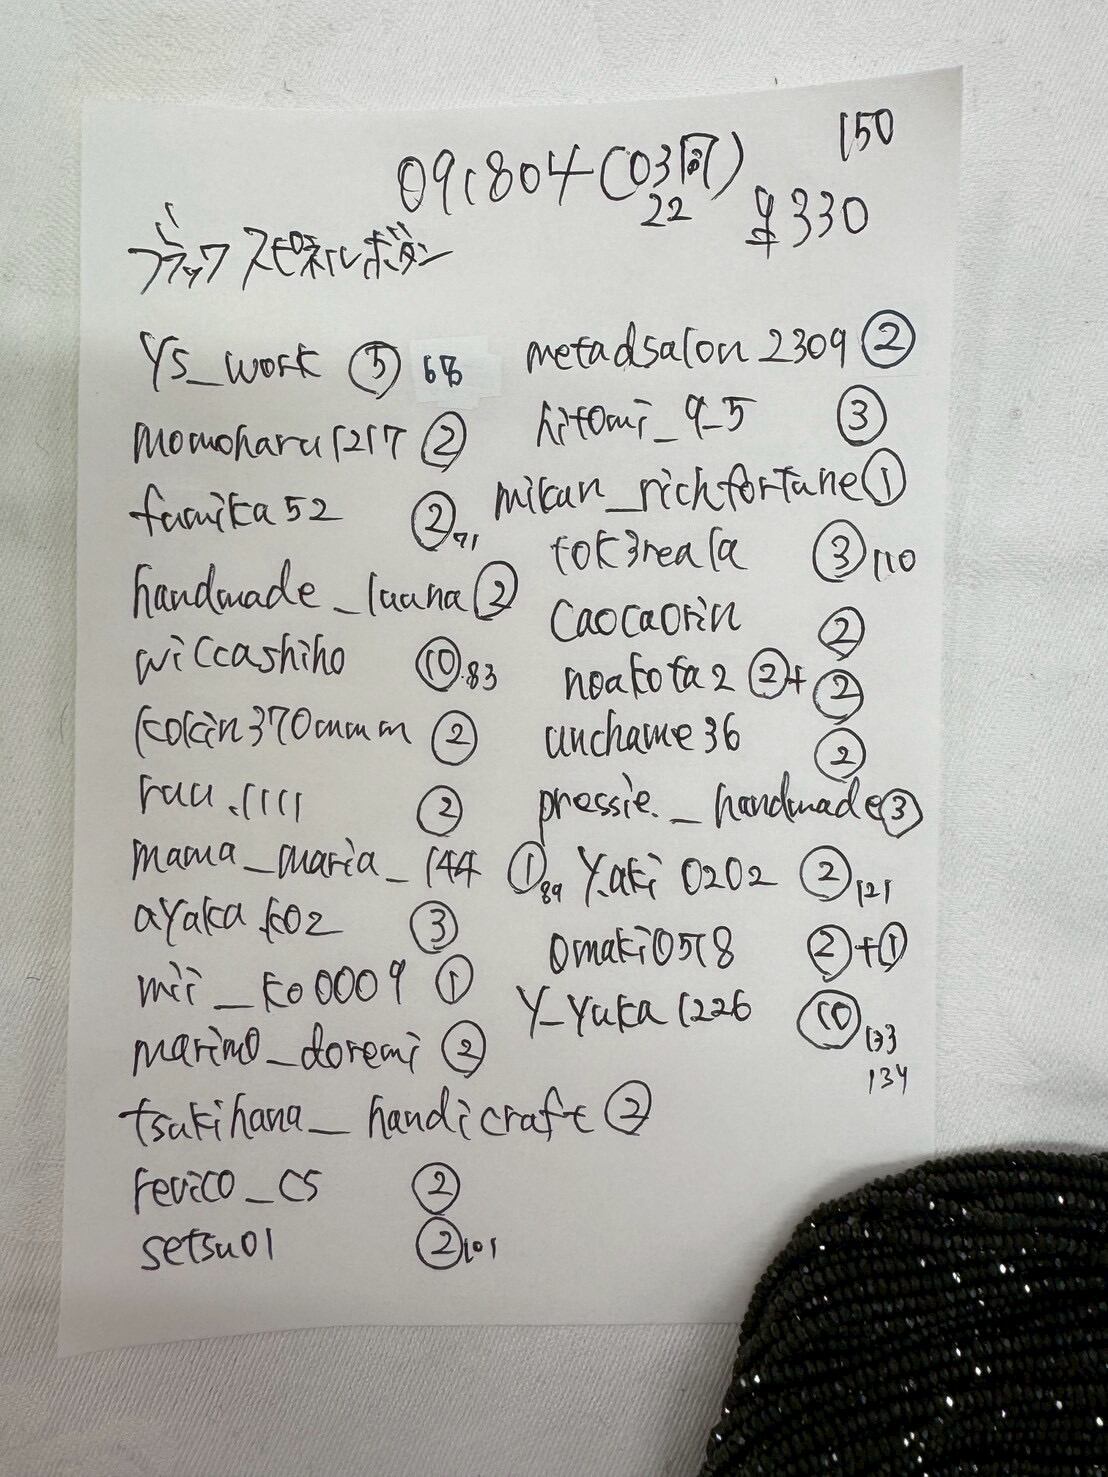 150
091804(03同)
22
¥330
ブラックスピネルボタン
ys_work ⑤ 68
momoharu1217 ②
fumika52 ② 71
handmade_luuna ②
wiccashiho ⑩.83
kokin370mmm ②
ruu.1111 ②
mama_maria_144 ① 89
ayaka.k02 ③
mii_ko0009 ①
marimo_doremi ②
tsukihana_handicraft ②
revico_cs ②
setsu01 ② 101
metadsalon2309 ②
hitomi_9_5 ③
mikan_richfortune ①
tok3reala ③ 110
caocaorin ②
noakota2 ②+②
unchame36 ②
pressie._handmade ③
y.aki0202 ② 121
omaki0518 ②+①
y_yuka1226 ⑩ 133
134